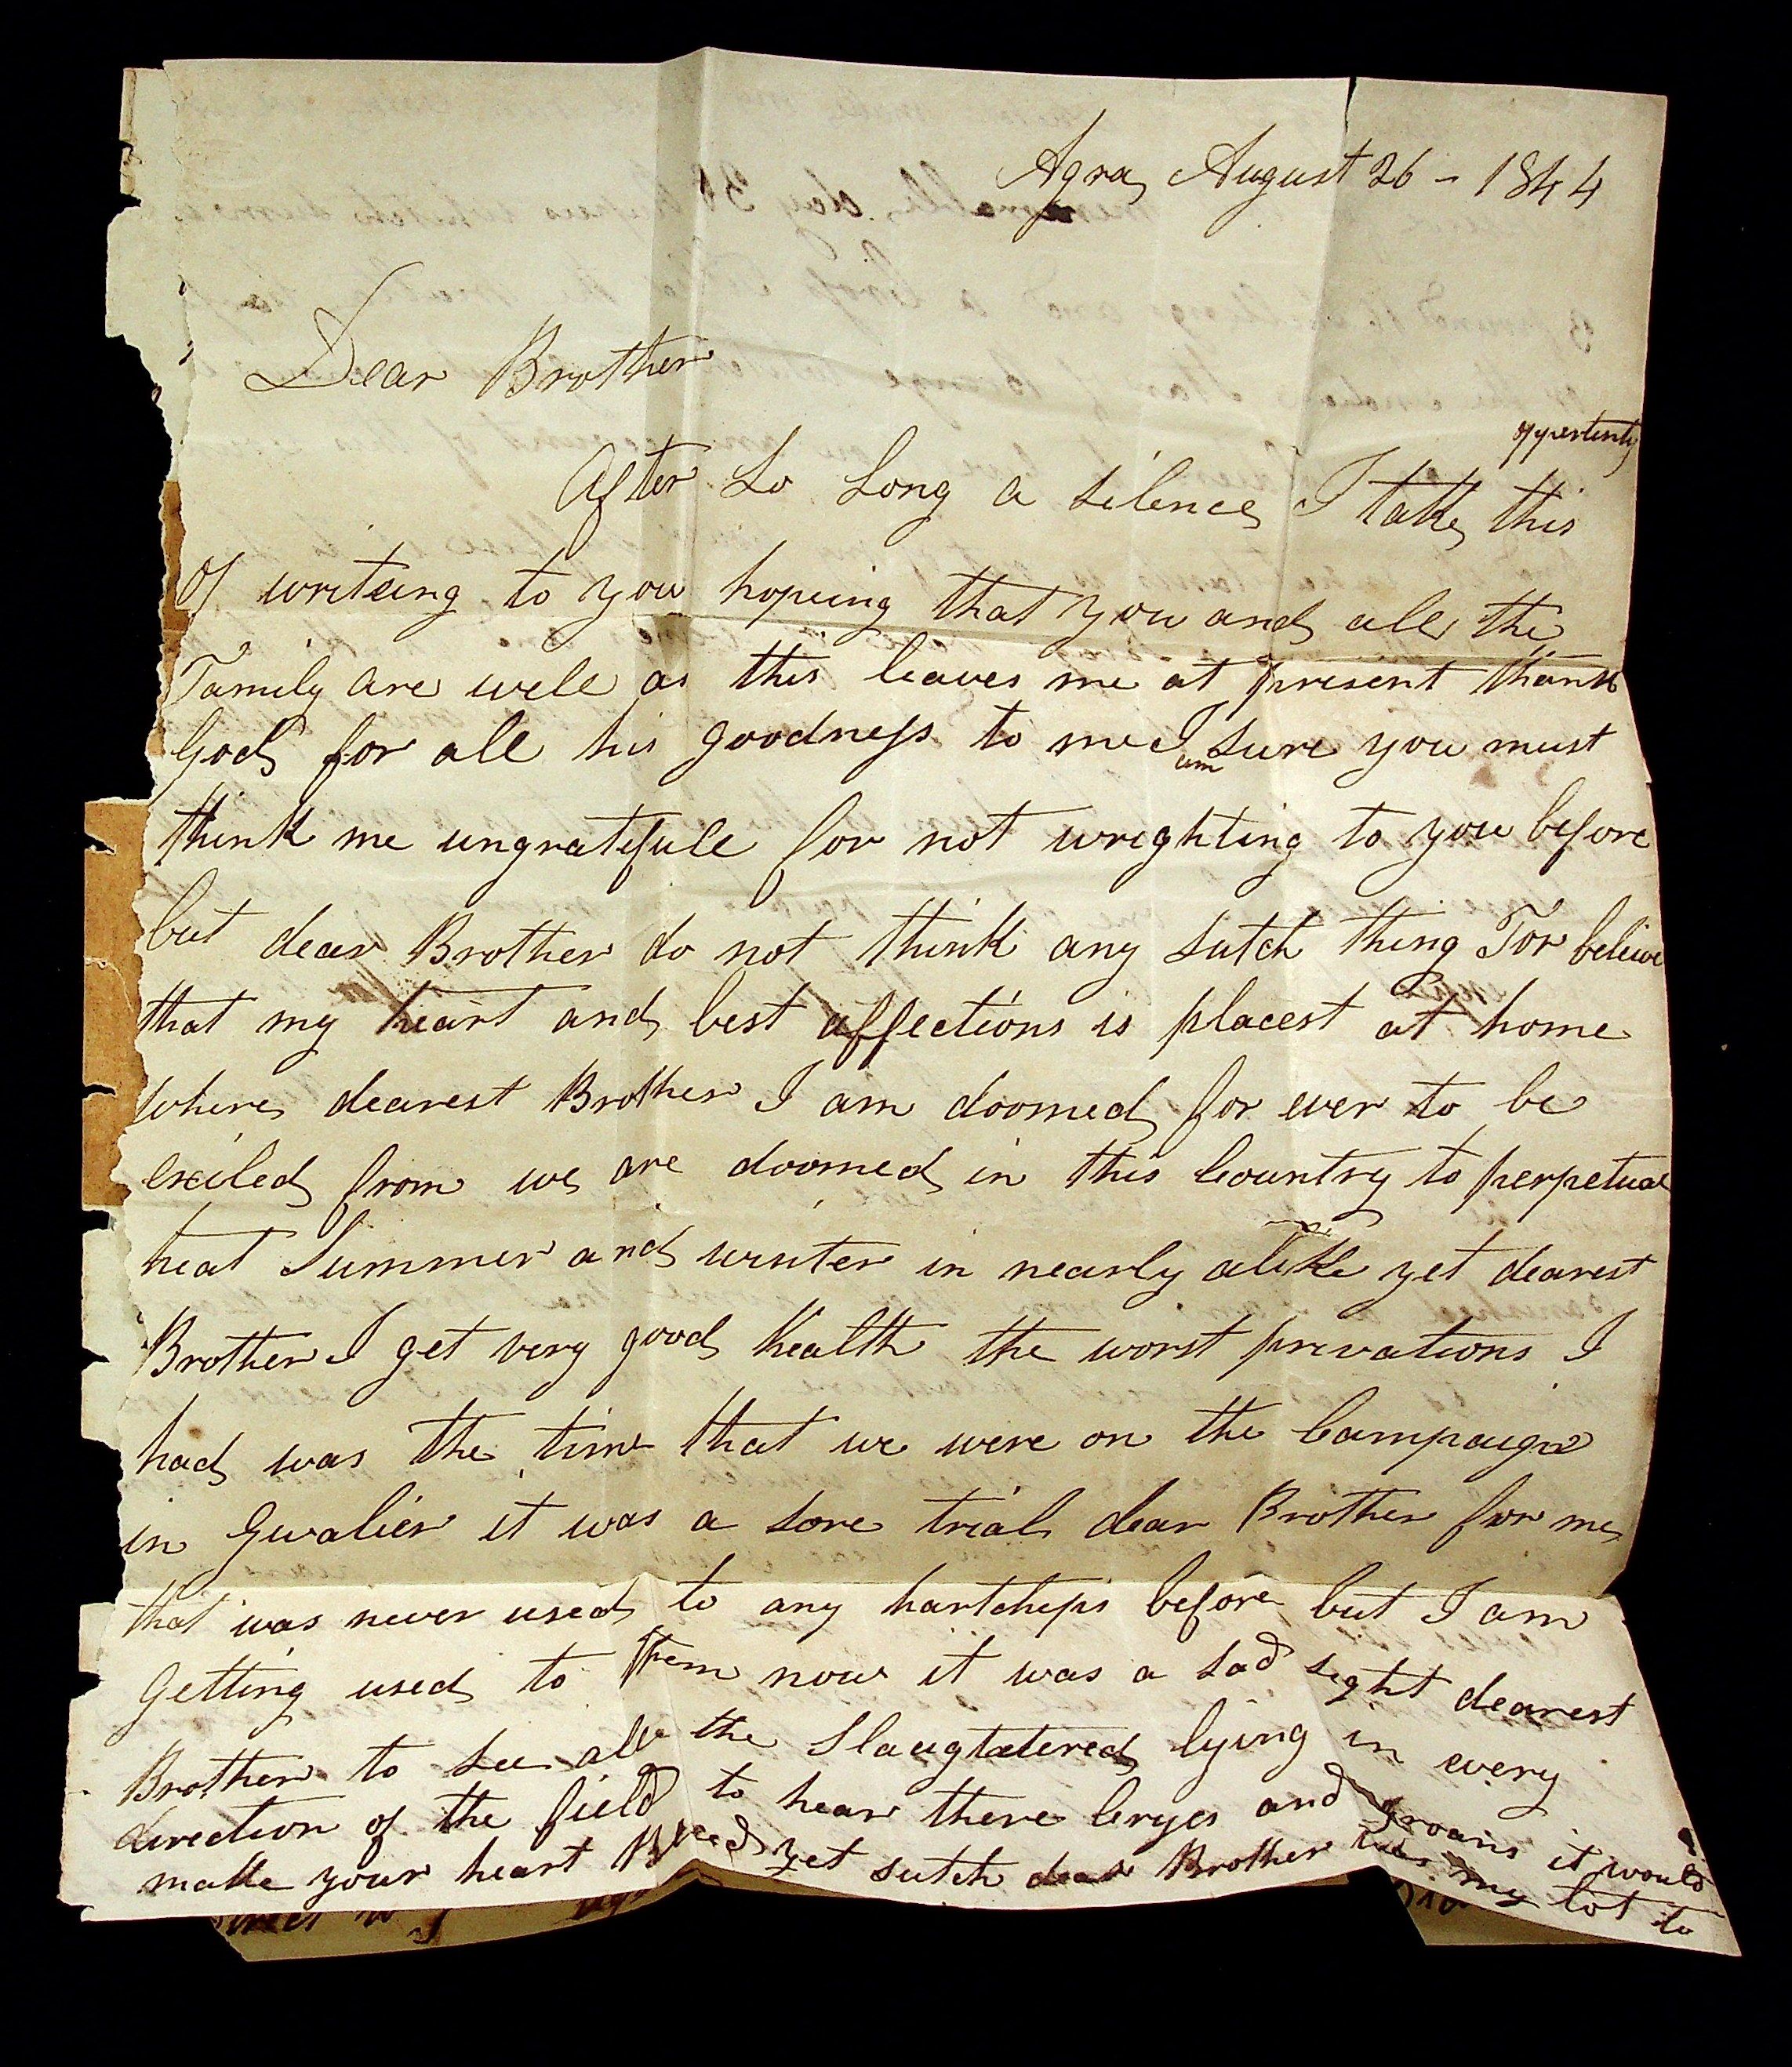 Agra August 26 - 1844
Dear Brother
oppertinty
After so long a silence I take this
of writeing to you hopeing that you and all the
Family are well as this leaves me at present thank
God for all his goodness to me I am sure you must
think me ungratefull for not wrighting to you before
but dear Brother do not think any sutch thing For beleive
that my heart and best affections is placest at home
where dearest Brother I am doomed for ever to be
exciled from we are doomed in this Country to perpetual
heat Summer and winter in nearly alike yet dearest
Brother I get very good health the worst privations I
had was the time that we were on the Campaign
in Gwalier it was a sore trial dear Brother for me
that was never used to any hartcheps before but I am
getting used to them now it was a sad sight dearest
Brother to see all the Slaugtetered lying in every
direction of the field to hear there cryes and groans it would
make your heart Bleed yet sutch dear Brother was my lot to